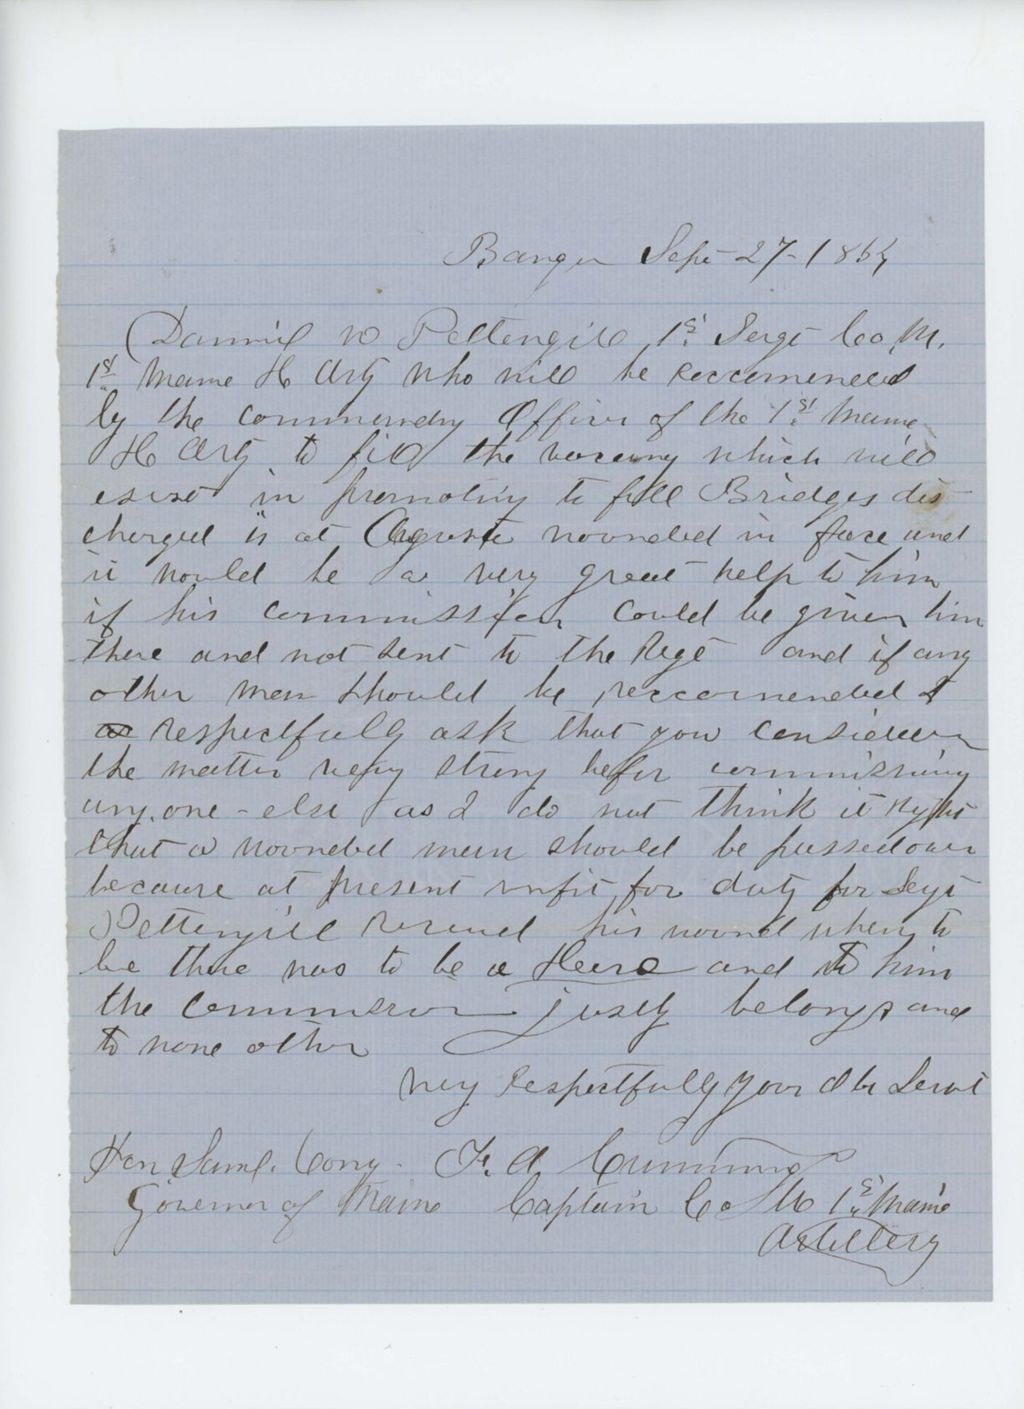 Bangor Sept 27 - 1864
Danniel W Pettengill 1st Sergt Co. M.
1st Maine H Arty who will be reccomended
by the commandng Officer of the 1st Maine
H Arty to fill the vacancy which will
exist in promoting to fill Bridges dis-
charged is at Augusta wounded in face and
it would be a very great help to him
if his commission could be given him
there and not sent to the Regt and if any
other man should be reccomended I
respectfully ask that you consider
the matter very strong befor commissining
any one - else as I do not think it right
that a wounded man should be passed over
because at present unfit for duty for Sergt
Pettengill received his wound when to
be there was to be a Hero and to him
the commission justly belongs and
to none other
Very Respectfully your Obt Servt
Hon Saml. Cony - F. A. Cummings
Governor of Maine Captain Co M 1st Maine
Artillery